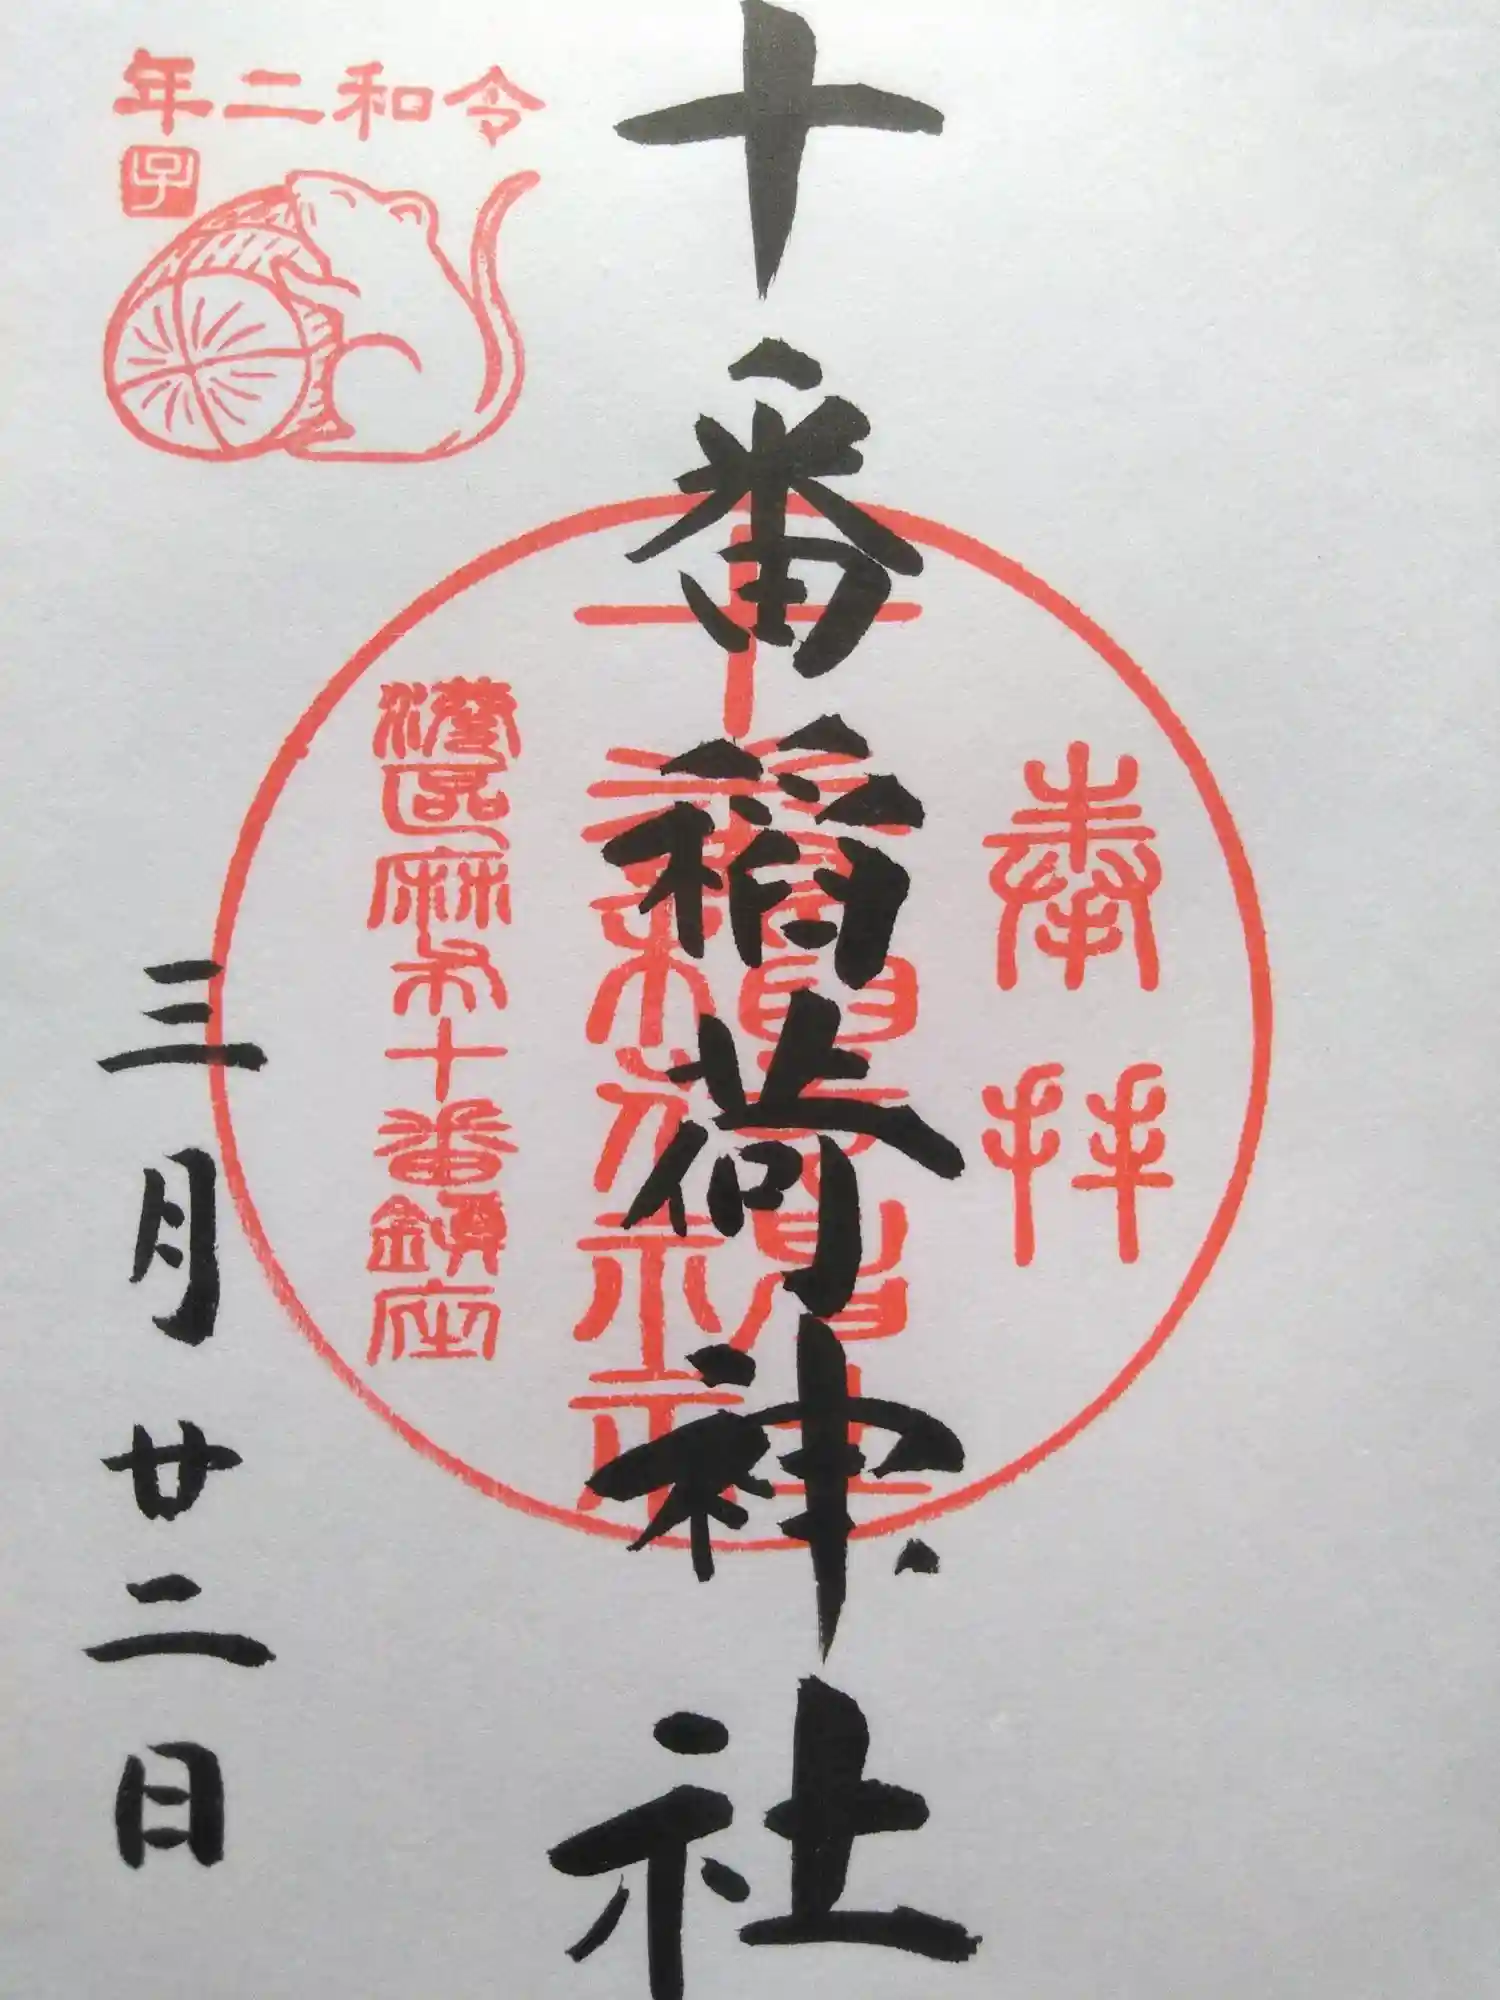 令和二年
子
奉拝
十番稲荷神社
港区麻布十番鎮座
三月廿二日